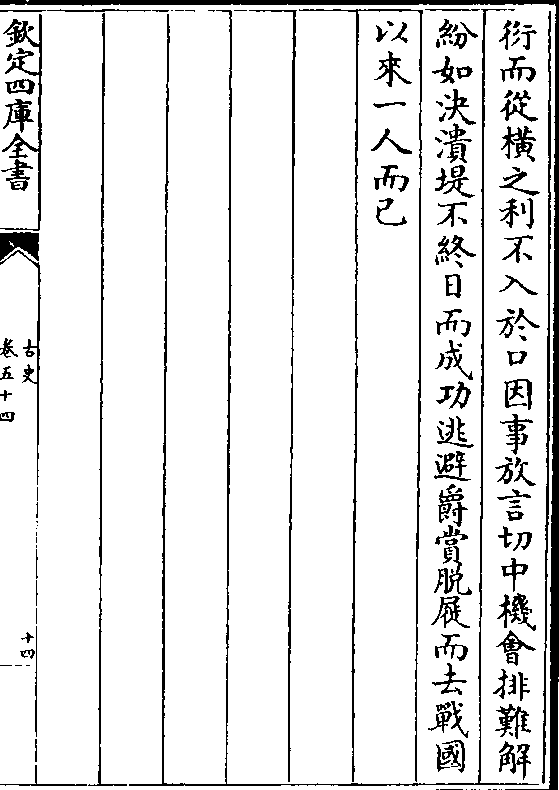 衍而從横之利不入於口因事放言切中機會排難解
紛如決潰堤不終日而成功逃避爵賞脱屣而去戰國
以來一人而已
欽定四庫全書
古史
卷五十四
十四